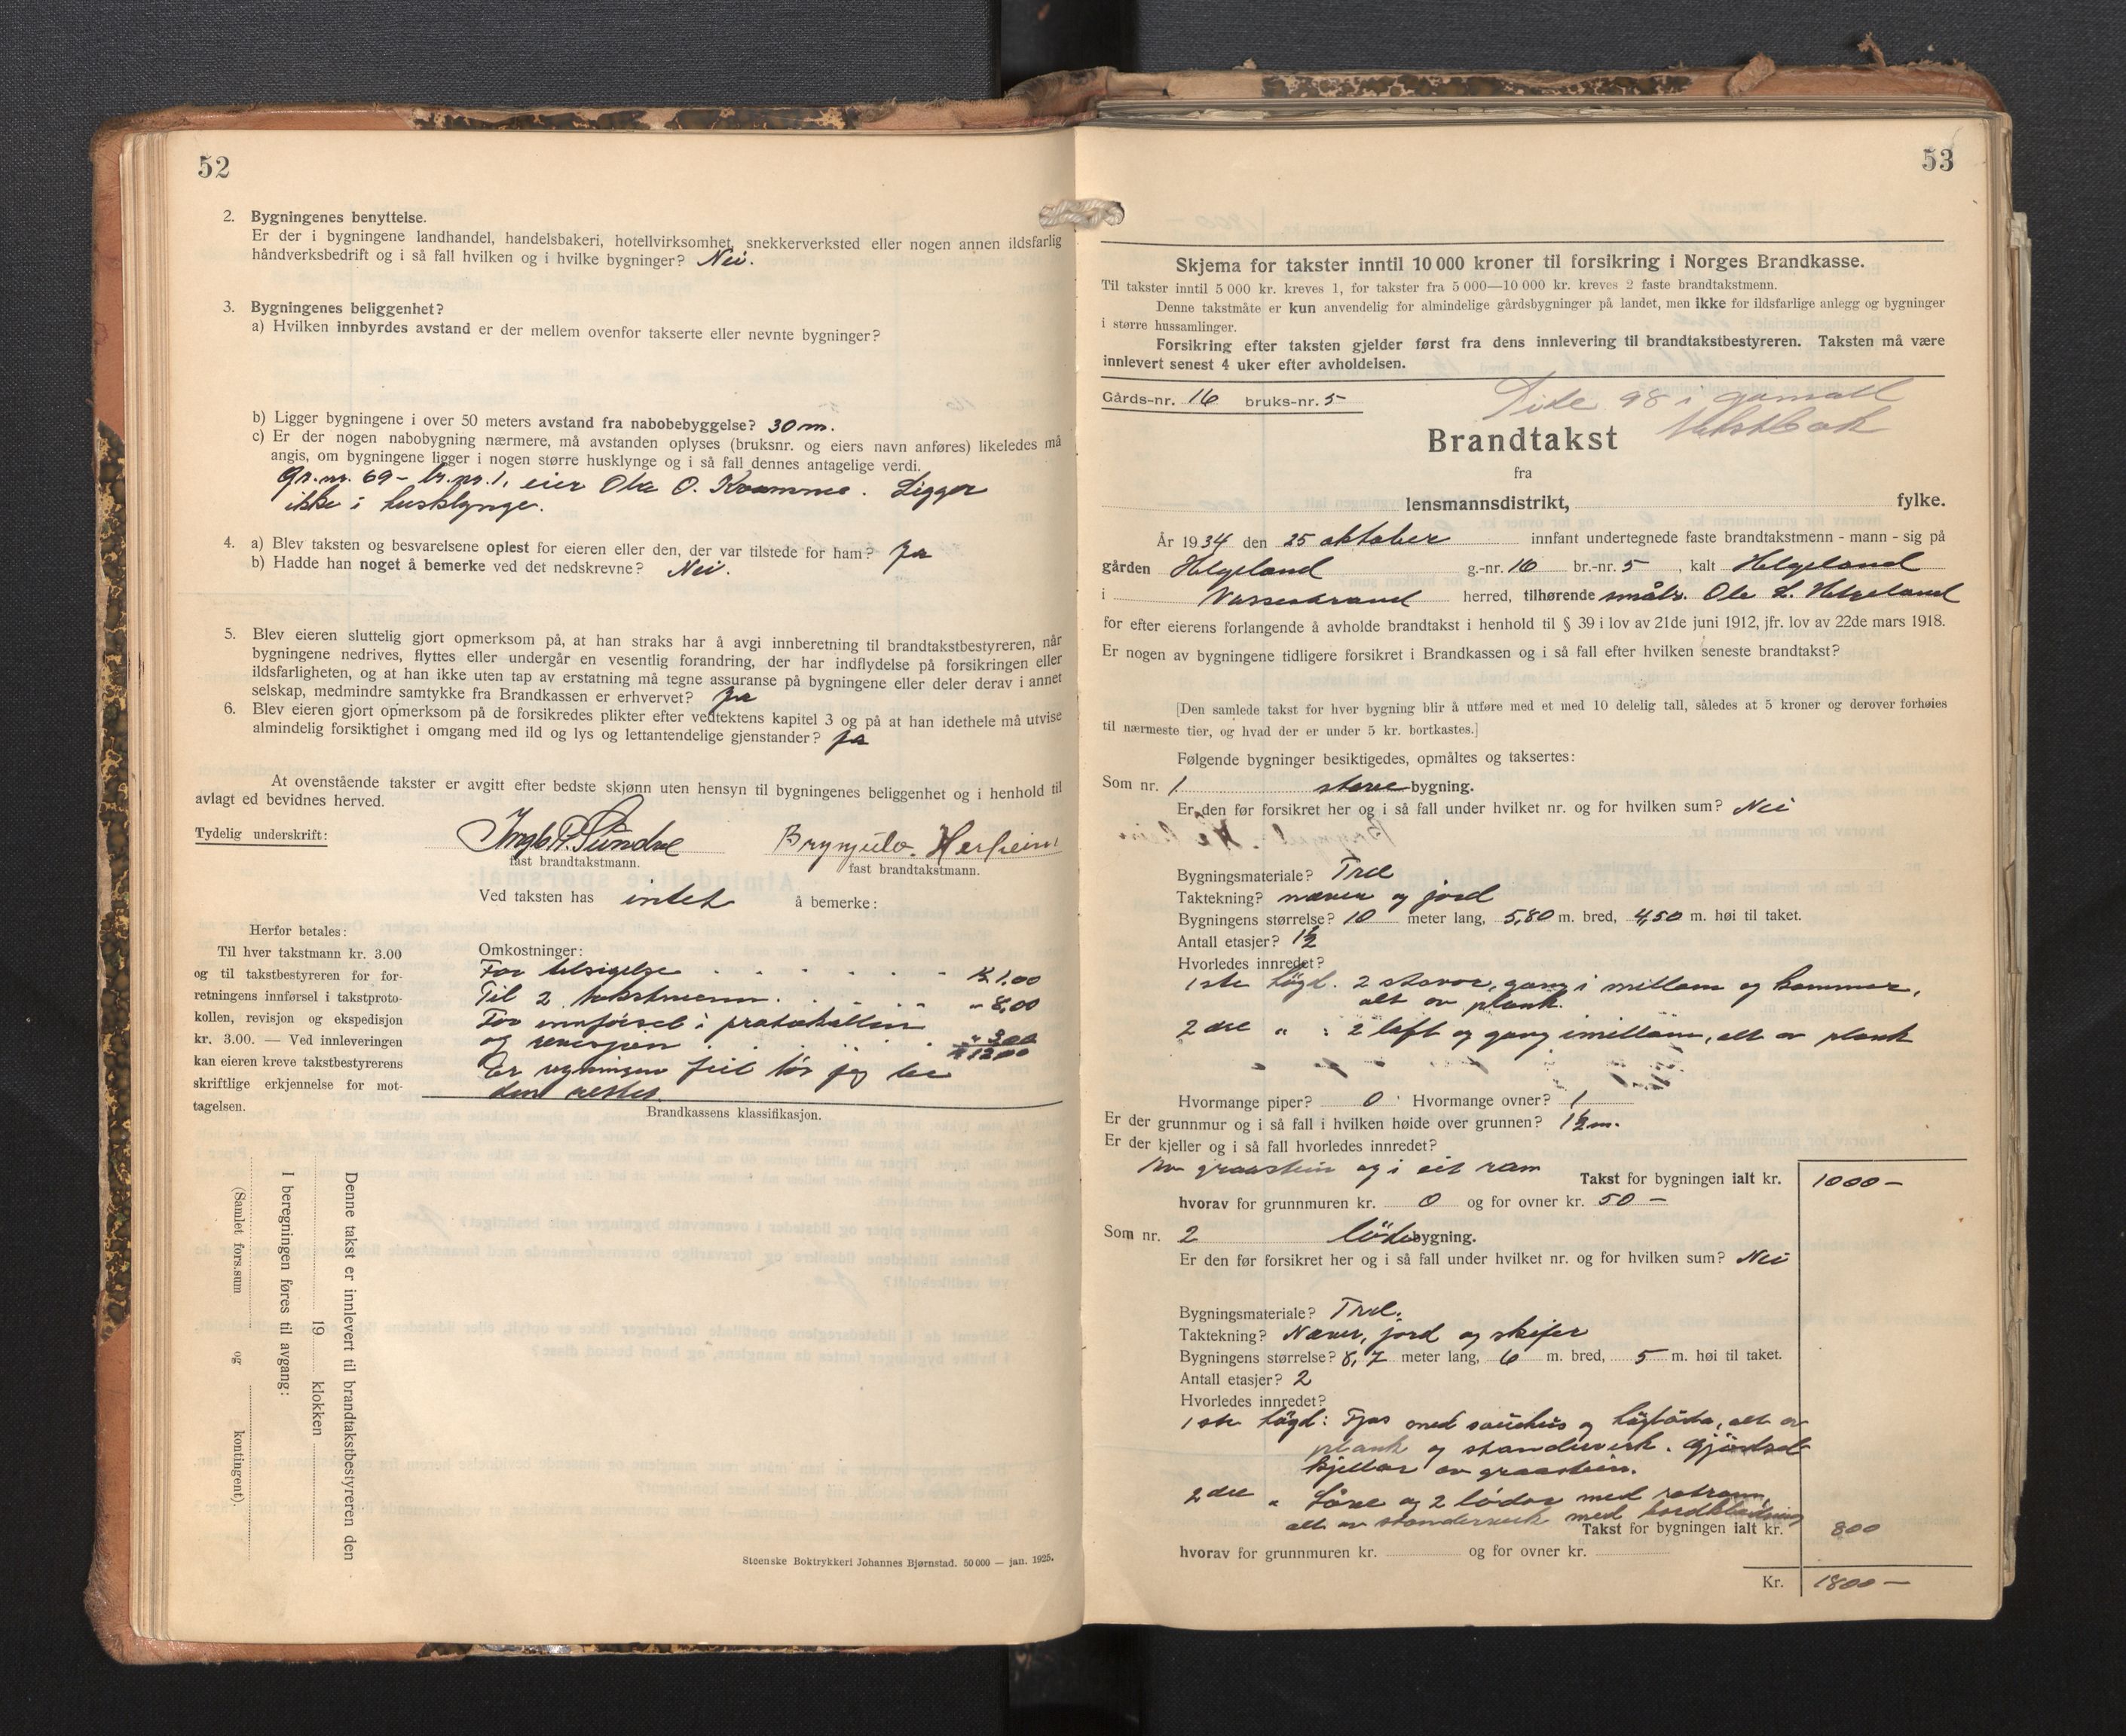 52
2. Bygningenes benyttelse.
Er der i bygningene landhandel, handelsbakeri, hotellvirksomhet, snekkerverksted eller nogen annen ildsfarlig
håndverksbedrift og i så fall hvilken og i hvilke bygninger? Nei.
3. Bygningenes beliggenhet?
a) Hvilken innbyrdes avstand er der mellem ovenfor takserte eller nevnte bygninger?
b) Ligger bygningene i over 50 meters avstand fra nabobebyggelse? 30 m.
c) Er der nogen nabobygning nærmere, må avstanden oplyses (bruksnr. og eiers navn anføres) likeledes må
angis, om bygningene ligger i nogen større husklynge og i så fall dennes antagelige verdi.
Gr.nr. 69 – br.nr. 1, eier Ola O. Kvamme. Ligger
ikke i husklynge.
4. a) Blev taksten og besvarelsene oplest for eieren eller den, der var tilstede for ham? Ja
b) Hadde han noget å bemerke ved det nedskrevne? Nei.
5. Blev eieren sluttelig gjort opmerksom på, at han straks har å avgi innberetning til brandtakstbestyreren, når
bygningene nedrives, flyttes eller undergår en vesentlig forandring, der har indflydelse på forsikringen eller
ildsfarligheten, og at han ikke uten tap av erstatning må tegne assuranse på bygningene eller deler derav i annet
selskap, medmindre samtykke fra Brandkassen er erhvervet? Ja
6. Blev eieren gjort opmerksom på de forsikredes plikter efter vedtektens kapitel 3 og på at han idethele må utvise
almindelig forsiktighet i omgang med ild og lys og lettantendelige gjenstander? Ja
At ovenstående takster er avgitt efter bedste skjønn uten hensyn til bygningenes beliggenhet og i henhold til
avlagt ed bevidnes herved.
Tydelig underskrift: Ingb. P. Sundve Brynjulv Herheim
fast brandtakstmann. fast brandtakstmann.
Ved taksten has intet å bemerke:
Herfor betales:
Til hver takstmann kr. 3.00
og til takstbestyreren for for-
retningens innførsel i takstproto-
kollen, revisjon og ekspedisjon
kr. 3.00. — Ved innleveringen
kan eieren kreve takstbestyrerens
skriftlige erkjennelse for mot-
tagelsen.
Omkostninger:
For tilsigelse kr 1,00
Til 2 takstmenn " 8,00
For innførsel i protokollen
og revisjon " 3,00
kr 12,00
Er regningen feil bør jeg
Brandkassens klassifikasjon.
Denne takst er innlevert til brandtakstbestyreren den
19 klokken
I beregningen føres til avgang:
(Samlet fors.sum og kontingent).
Steenske Boktrykkeri Johannes Bjørnstad. 50 000 — jan. 1925.
53
Skjema for takster inntil 10 000 kroner til forsikring i Norges Brandkasse.
Til takster inntil 5 000 kr. kreves 1, for takster fra 5 000—10 000 kr. kreves 2 faste brandtakstmenn.
Denne takstmåte er kun anvendelig for almindelige gårdsbygninger på landet, men ikke for ildsfarlige anlegg og bygninger
i større hussamlinger.
Forsikring efter taksten gjelder først fra dens innlevering til brandtakstbestyreren. Taksten må være
innlevert senest 4 uker efter avholdelsen.
Gårds-nr. 16 bruks-nr. 5
Side 98 i gamall
takstbok
Brandtakst
fra
lensmannsdistrikt, fylke.
År 1934 den 25 oktober innfant undertegnede faste brandtakstmenn - mann - sig på
gården Helgeland g.-nr. 16 br.-nr. 5, kalt Helgeland
i Vossestrand herred, tilhørende småbr. Ole L. Helgeland
for efter eierens forlangende å avholde brandtakst i henhold til § 39 i lov av 21de juni 1912, jfr. lov av 22de mars 1918.
Er nogen av bygningene tidligere forsikret i Brandkassen og i så fall efter hvilken seneste brandtakst?
[Den samlede takst for hver bygning blir å utføre med et med 10 delelig tall, således at 5 kroner og derover forhøies
til nærmeste tier, og hvad der er under 5 kr. bortkastes.]
Følgende bygninger besiktigedes, opmåltes og taksertes:
Som nr. 1 stove bygning.
Er den før forsikret her og i så fall under hvilket nr. og for hvilken sum? Nei
Bygningsmateriale? Tree
Taktekning? næver og jord
Bygningens størrelse? 10 meter lang, 5,80 m. bred, 4,50 m. høi til taket.
Antall etasjer? 1½
Hvorledes innredet?
1ste høgd. 2 stovor, gang i millom og kammer,
alt av plank.
2dre " : 2 loft og gang imillom, alt av plank
Hvormange piper? 0 Hvormange ovner? 1
Er der grunnmur og i så fall i hvilken høide over grunnen? 1½ m.
Er der kjeller og i så fall hvorledes innredet?
av graastein og i eit rom Takst for bygningen ialt kr. 1000 —
hvorav for grunnmuren kr. 0 og for ovner kr. 50 —
Som nr. 2 løde bygning.
Er den før forsikret her og i så fall under hvilket nr. og for hvilken sum? Nei
Bygningsmateriale? Tree.
Taktekning? Næver, jord og skifer
Bygningens størrelse? 8,7 meter lang, 6 m. bred, 5 m. høi til taket.
Antall etasjer? 2
Hvorledes innredet?
1ste høgd: Fjos med sauehus og høyløda, alt av
plank og standerverk. Gjødsel
kjellar av graastein.
2dre " Låve og 2 lødor med
alt av standerverk med bordkledning
Takst for bygningen ialt kr. 800
hvorav for grunnmuren kr. og for ovner kr.
Kr. 1800 —